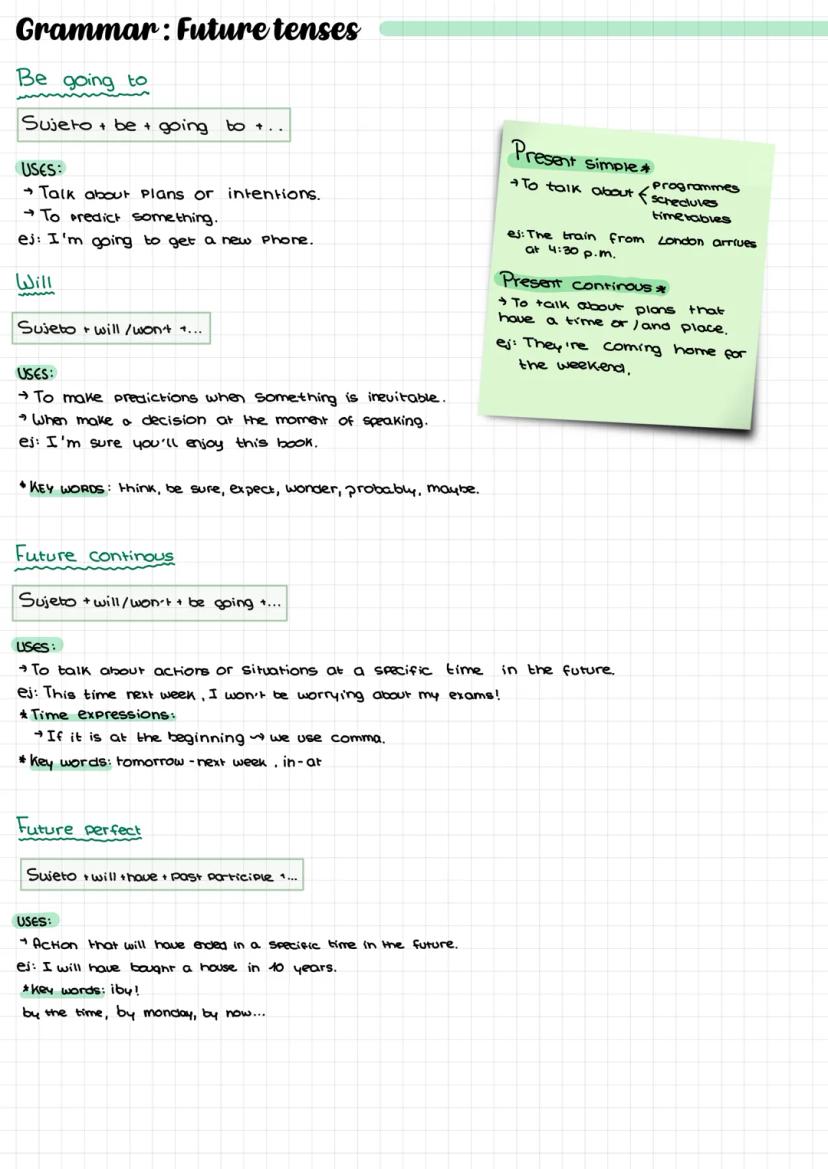 Grammar: Future tenses
Be going to
Sujeto + be + going to +..
USES:
→ Talk about plans or intentions.
→ To predict something.
ej: I'm going to get a new phone.
Will
Sujeto + will /won't +...
USES:
→ To make predictions when something is inevitable.
→ When make a decision at the moment of speaking.
ej: I'm sure you'll enjoy this book.
*KEY WORDS: think, be sure, expect, wonder, probably, maybe.
Present simple*
→ To talk about < programmes
schedules
timetables
ej: The train from London arrives
at 4:30 p.m.
Present continous*
→ To talk about plans that
have a time or/and place.
ej: They're coming home for
the weekend.
Future continous
Sujeto + will/won't + be going +...
USES:
→ To talk about actions or situations at a specific time in the future.
ej: This time next week, I won't be worrying about my exams!
*Time expressions:
→ If it is at the beginning ↝ we use comma.
*Key words: tomorrow - next week, in - at
Future perfect
Sujeto + will + have + past participle +...
USES:
→ Action that will have ended in a specific time in the future.
ej: I will have bought a house in 10 years.
*Key words: ¡by!
by the time, by monday, by now...